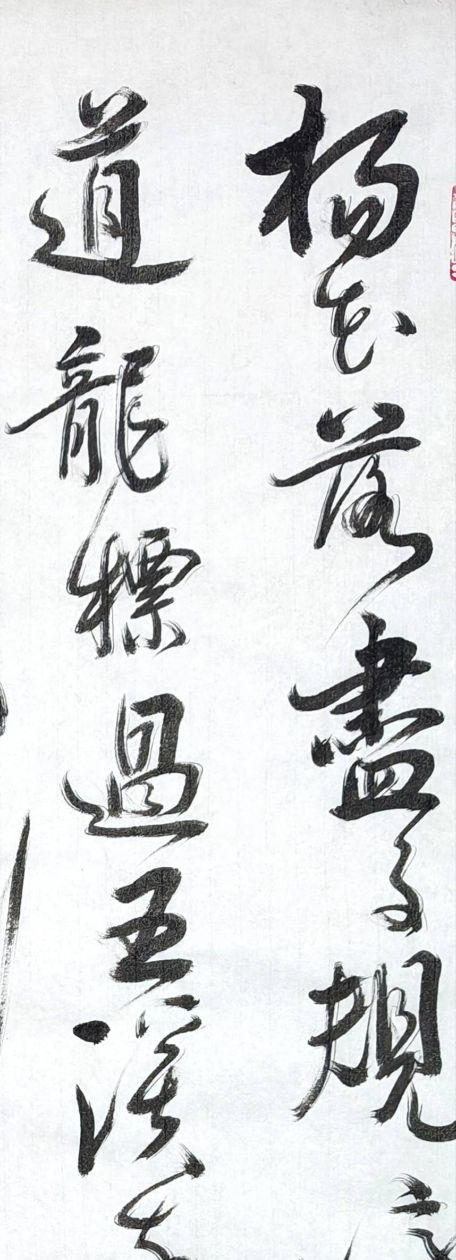 楊花落盡子規
道龍標過五溪